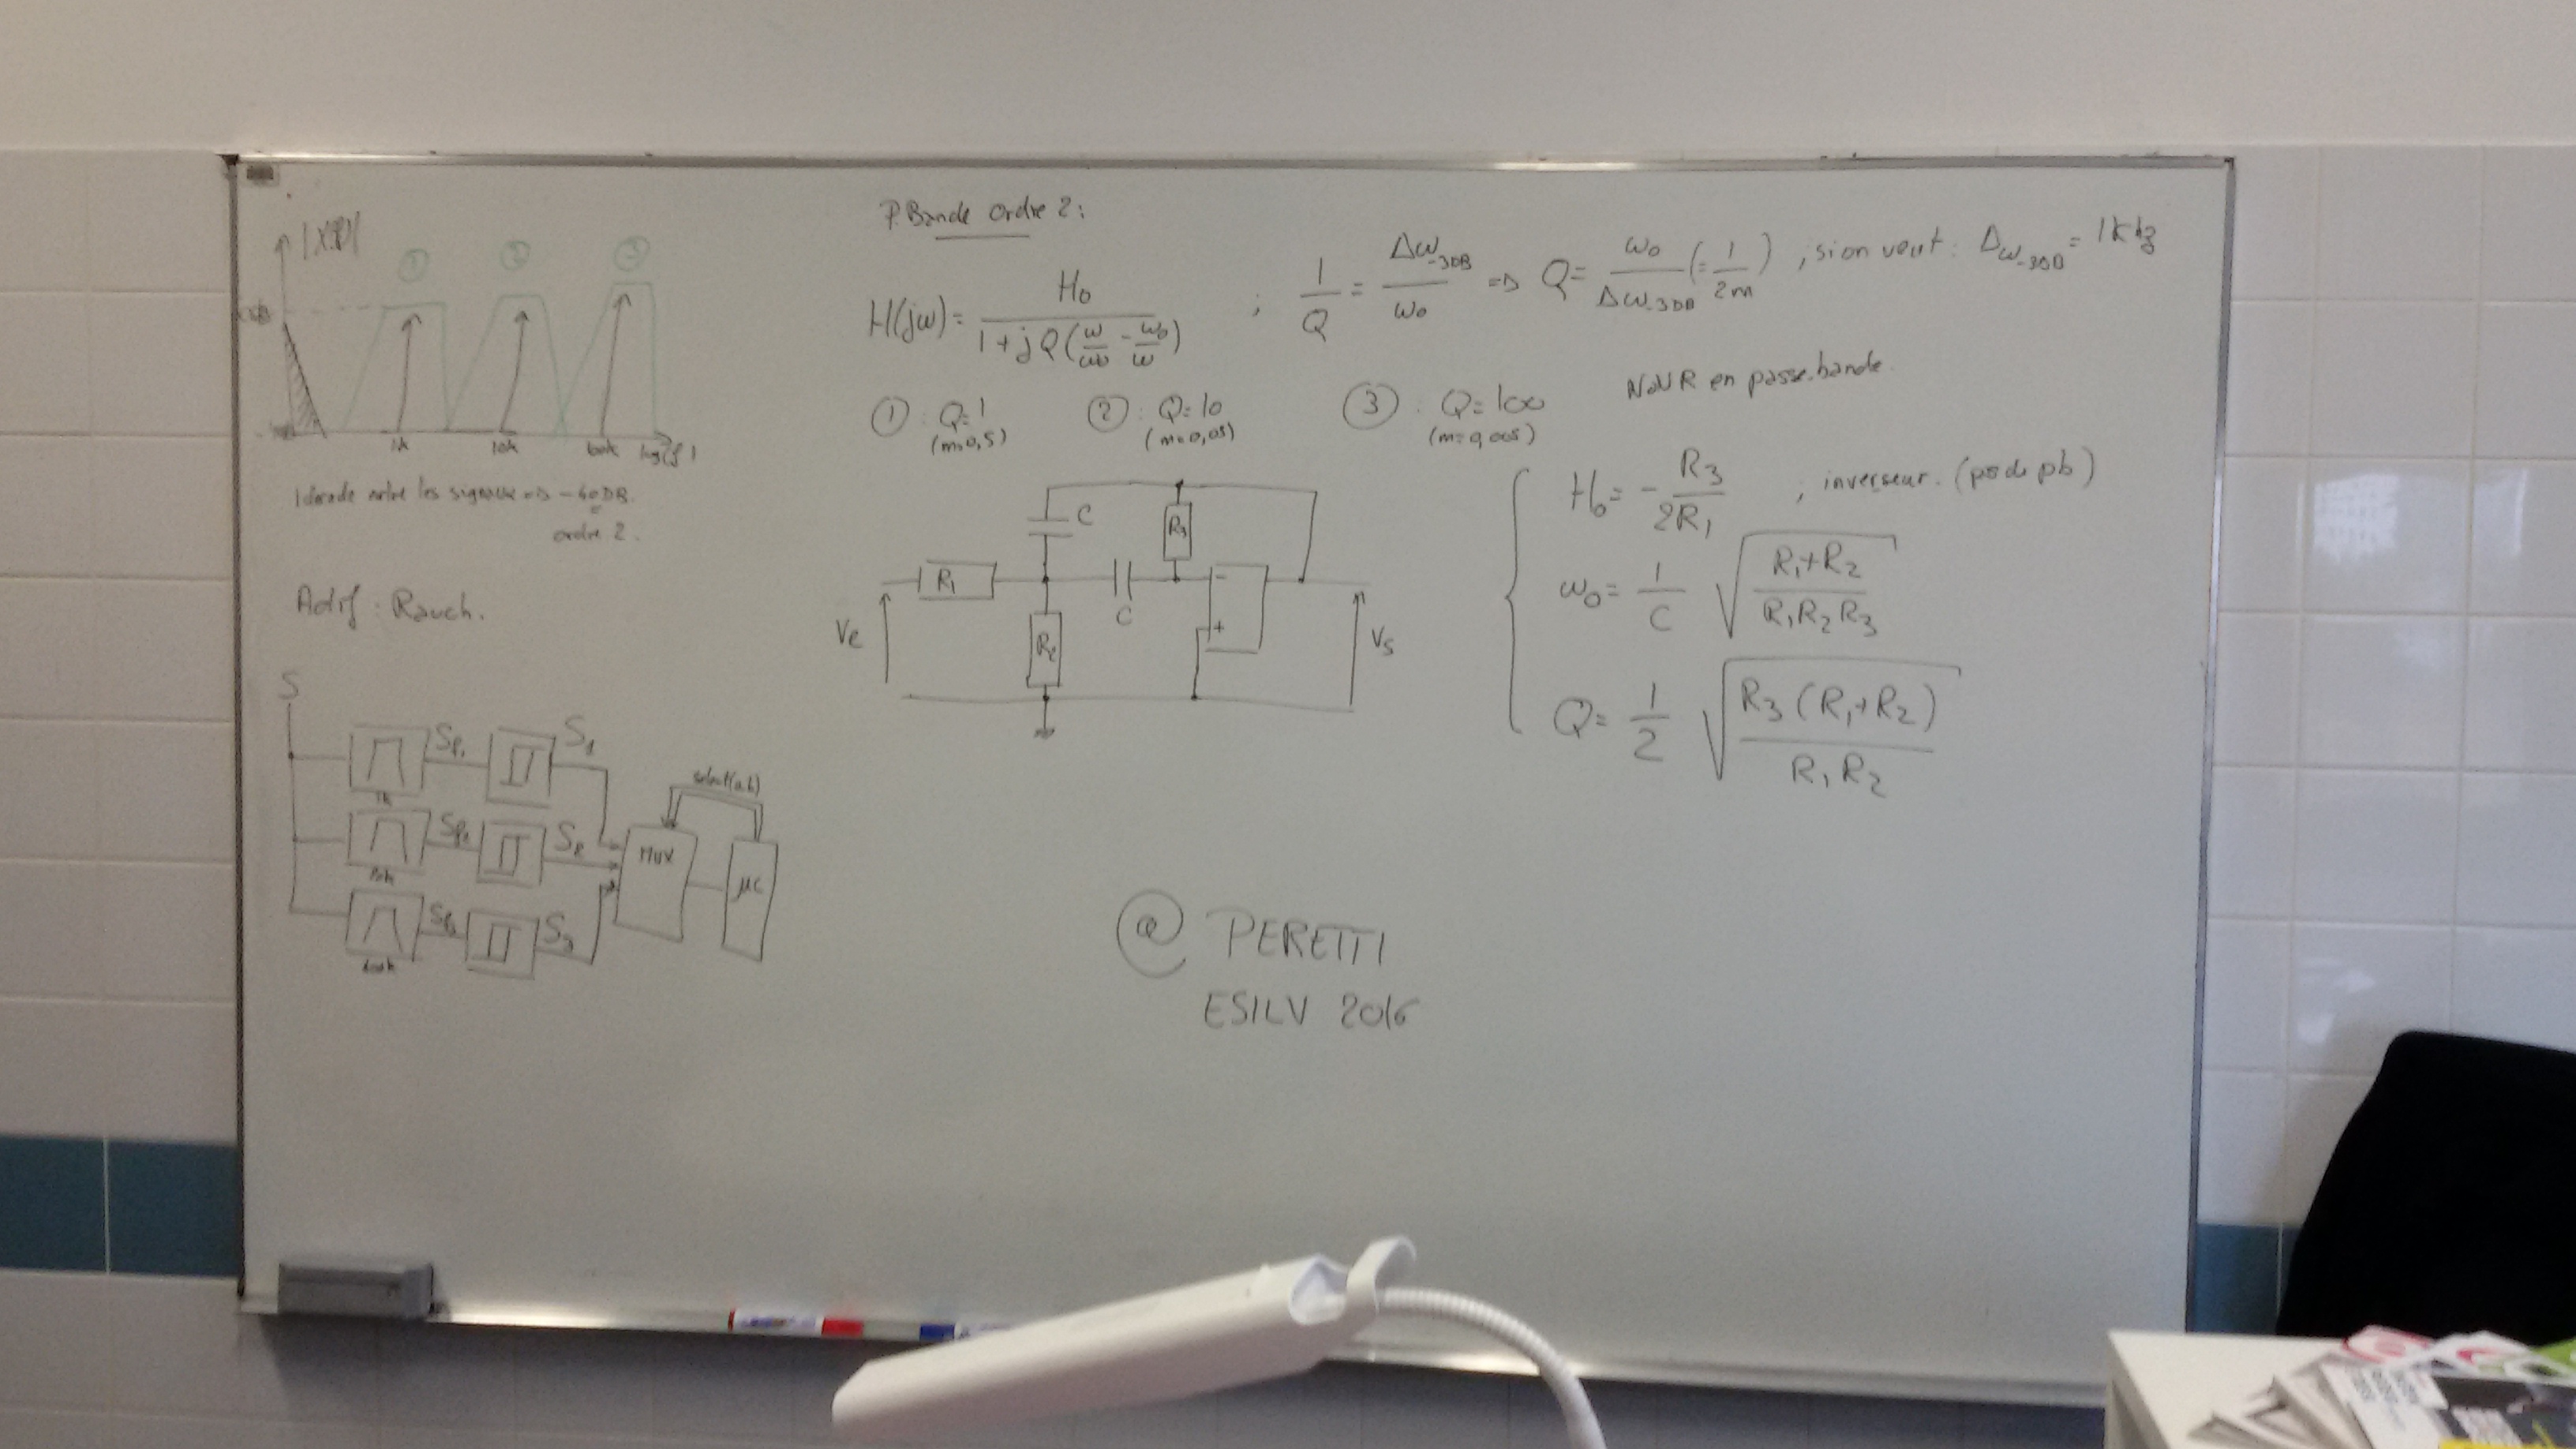 |X(f)|
① ② ③
1k 10k 100k log(f)
1 decade entre les signaux => -40DB.
ordre 2.
Actif : Rauch.
S
Sp1 S1
1k
Sp2 S2
10k
Sp3 S3
100k
select(a,b)
MUX
µC
P.Bande ordre 2:
H(jω)= H0 / (1+jQ(ω/ω0 - ω0/ω)) ; 1/Q = Δω-3DB / ω0 => Q= ω0 / Δω-3DB (= 1/2m) , si on veut : Δω-3DB = 1kHz
① : Q=1 ② : Q=10 ③ : Q=100 en passe.bande.
(m=0,5) (m=0,05) (m=0,005)
C
R3
R1
C
R2
-
+
Ve
Vs
H0= - R3 / 2R1 ; inverseur. (pas de pb)
ω0= 1/C √((R1+R2) / (R1R2R3))
Q= 1/2 √(R3(R1+R2) / (R1R2))
@ PERETTI
ESILV 2016